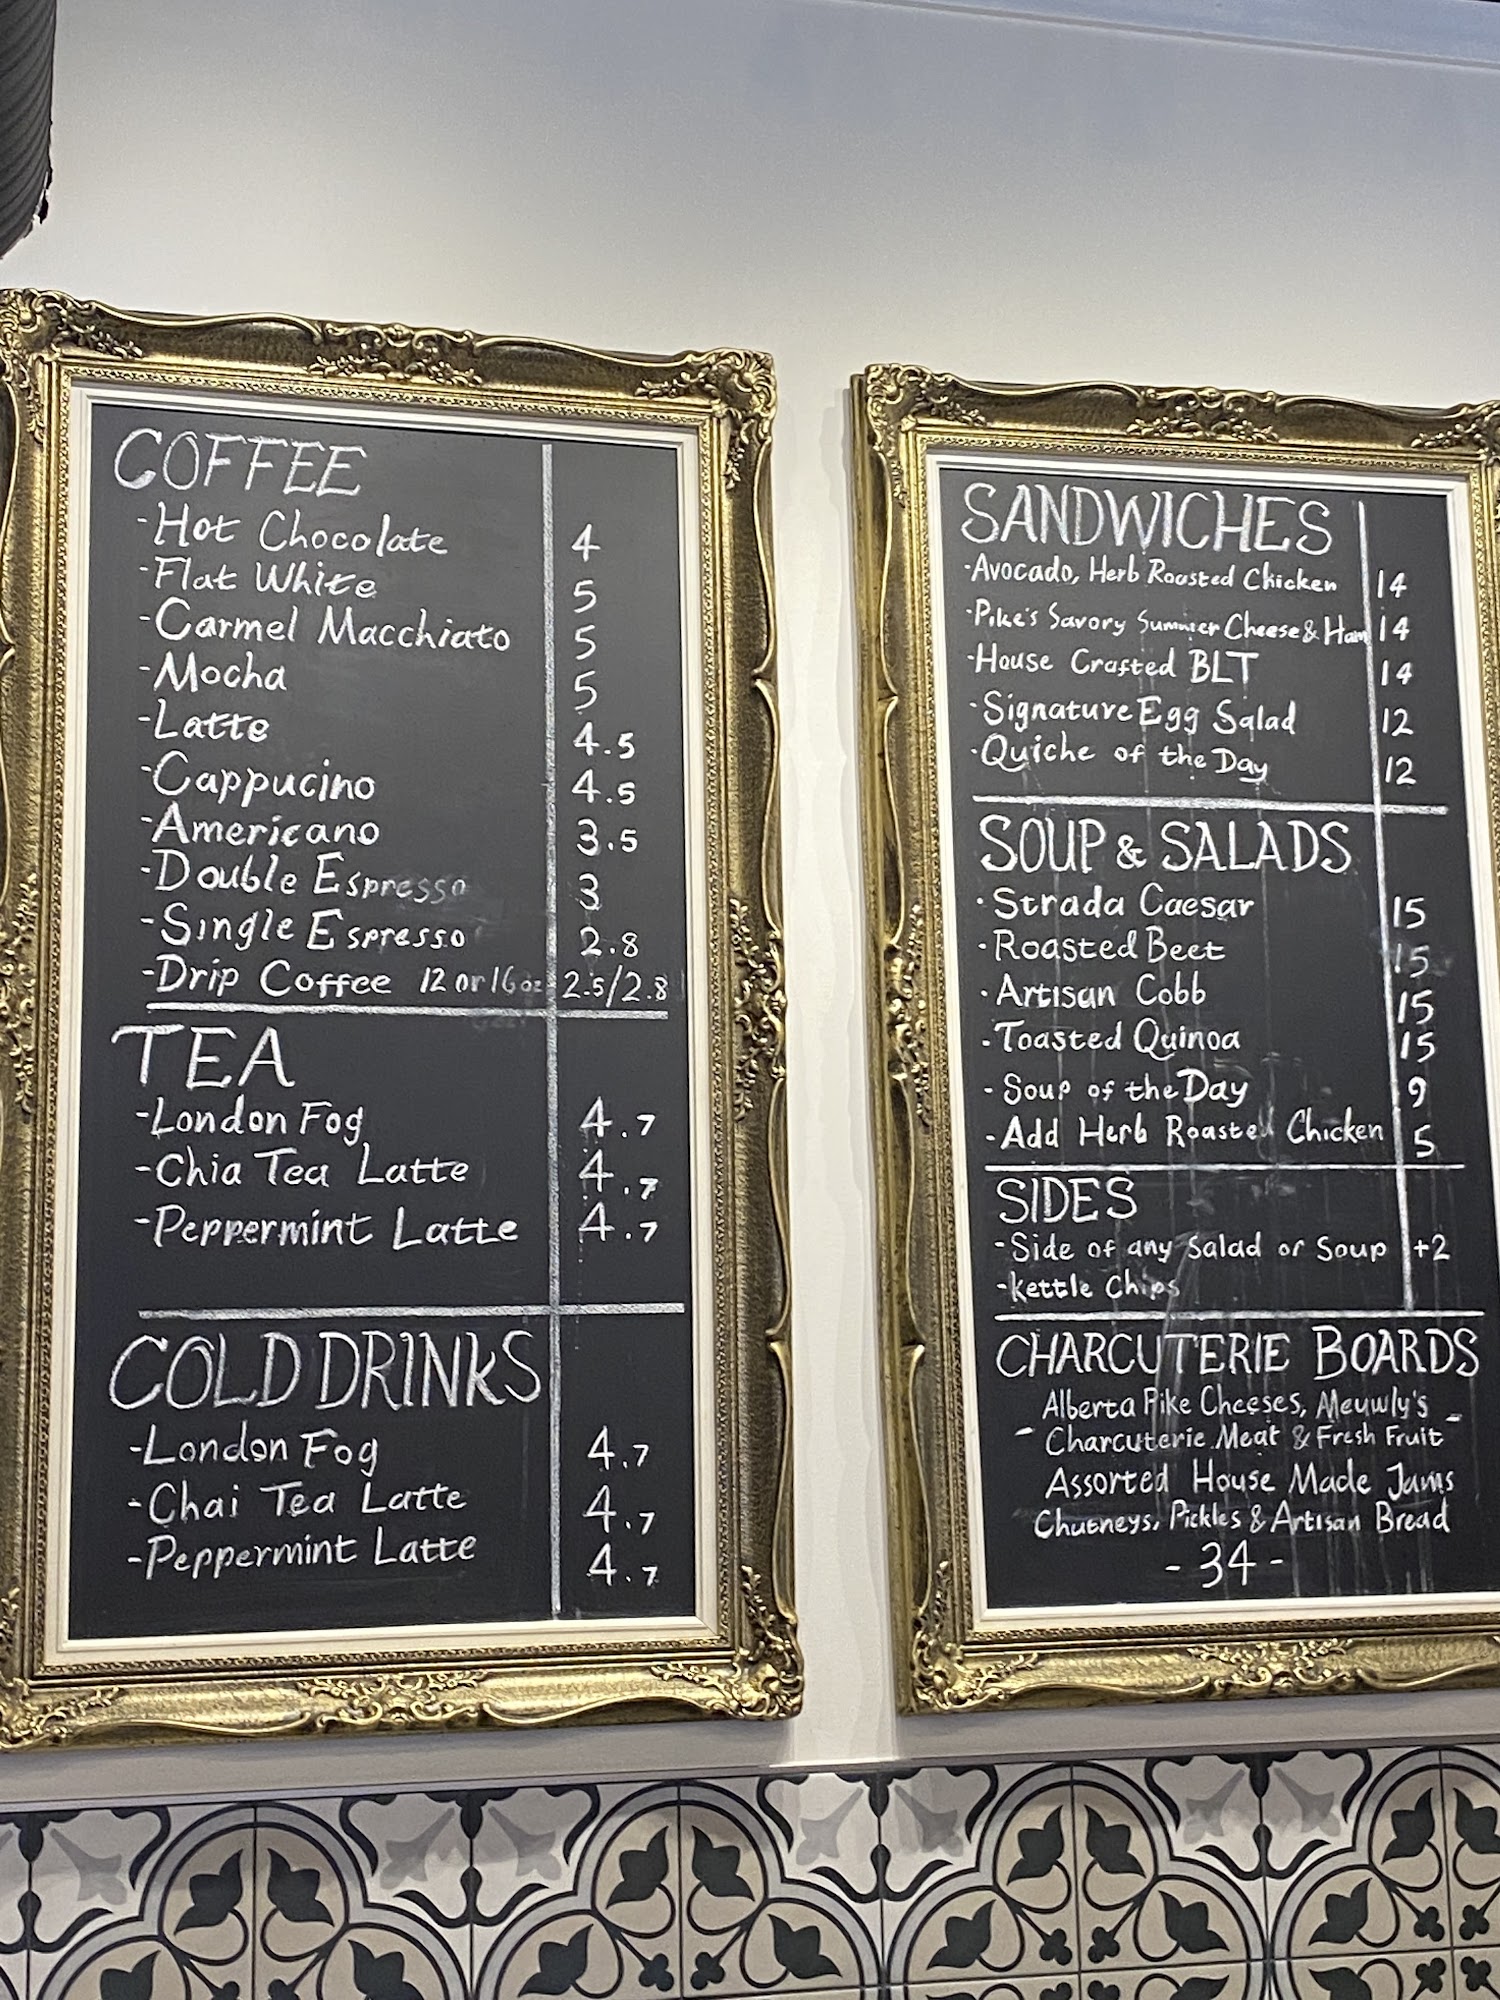 COFFEE
-Hot Chocolate 4
-Flat White 5
-Carmel Macchiato 5
-Mocha 5
-Latte 4.5
-Cappucino 4.5
-Americano 3.5
-Double Espresso 3
-Single Espresso 2.8
-Drip Coffee 12 or 16oz 2.5/2.8
TEA
-London Fog 4.7
-Chia Tea Latte 4.7
-Peppermint Latte 4.7
COLD DRINKS
-London Fog 4.7
-Chai Tea Latte 4.7
-Peppermint Latte 4.7
SANDWICHES
-Avocado, Herb Roasted Chicken 14
-Pike's Savory Summer Cheese & Ham 14
-House Crafted BLT 14
-Signature Egg Salad 12
-Quiche of the Day 12
SOUP & SALADS
-Strada Caesar 15
-Roasted Beet 15
-Artisan Cobb 15
-Toasted Quinoa 15
-Soup of the Day 9
-Add Herb Roasted Chicken 5
SIDES
-Side of any Salad or Soup +2
-Kettle Chips
CHARCUTERIE BOARDS
Alberta Pike Cheeses, Meuwly's
- Charcuterie Meat & Fresh Fruit -
Assorted House Made Jams
Chutneys, Pickles & Artisan Bread
- 34 -